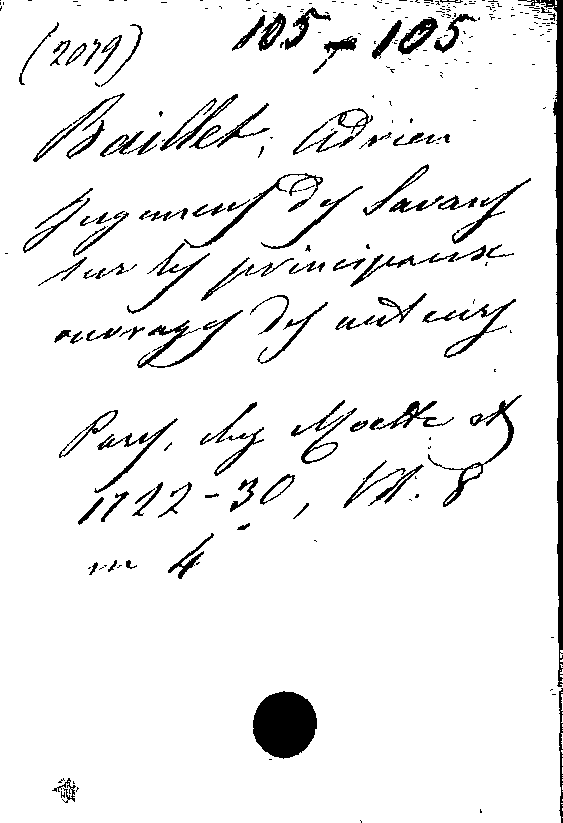 (2079) 105-105
Baillet, Adrien
Jugemens des Savans
sur les principaux
ouvrages des auteurs
Paris, chez Moette et
1722-30, Vol. 8
in 4º